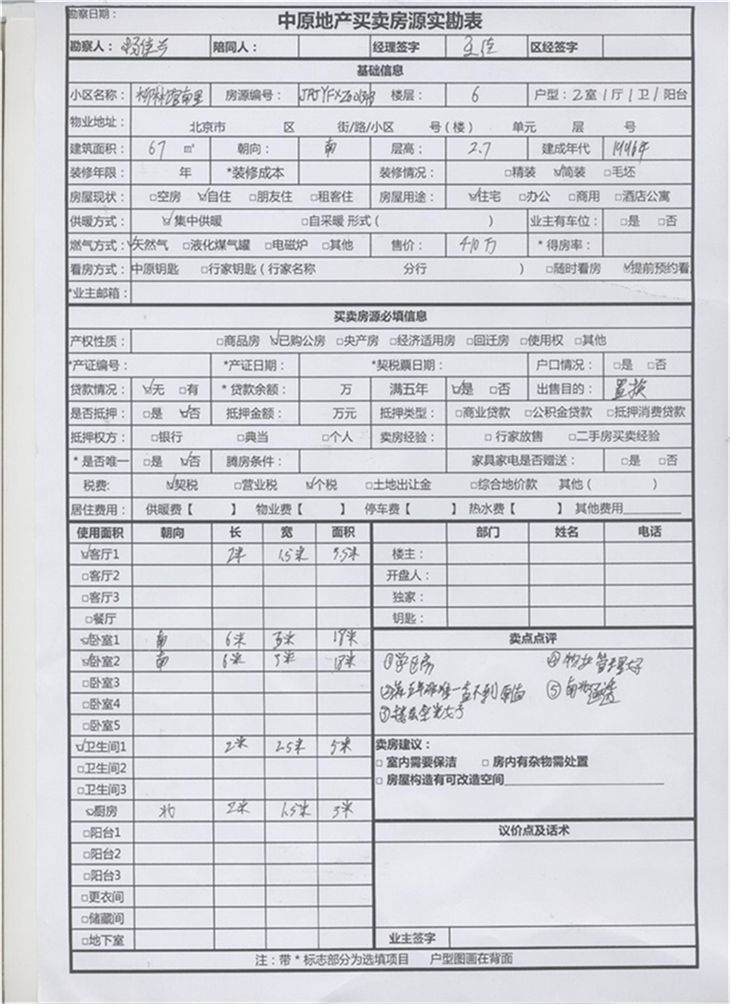 勘察日期：
中原地产买卖房源实勘表
勘察人： 陪同人： 经理签字 区经签字
基础信息
小区名称： 柳林馆南里 房源编号： 楼层： 6 户型：2室1厅1卫1阳台
物业地址： 北京市 区 街/路/小区 号（楼） 单元 层 号
建筑面积： 67 ㎡ 朝向： 南 层高： 2.7 建成年代 1996年
装修年限： 年 *装修成本 装修情况： □精装 ☑简装 □毛坯
房屋现状： □空房 ☑自住 □朋友住 □租客住 房屋用途： ☑住宅 □办公 □商用 □酒店公寓
供暖方式： ☑集中供暖 □自采暖 形式（ ） 业主有车位： □是 □否
燃气方式： ☑天然气 □液化煤气罐 □电磁炉 □其他 售价： 410万 *得房率：
看房方式： 中原钥匙 □行家钥匙（行家名称 分行 ） □随时看房 ☑提前预约看
*业主邮箱：
买卖房源必填信息
产权性质： □商品房 ☑已购公房 □央产房 □经济适用房 □回迁房 □使用权 □其他
*产证编号： *产证日期： *契税票日期： 户口情况： □是 □否
贷款情况： ☑无 □有 *贷款余额： 万 满五年 ☑是 □否 出售目的： 置换
是否抵押： □是 ☑否 抵押金额： 万元 抵押类型： □商业贷款 □公积金贷款 □抵押消费贷款
抵押权方： □银行 □典当 □个人 卖房经验： □ 行家放售 □二手房买卖经验
*是否唯一 □是 ☑否 腾房条件： 家具家电是否赠送： □是 □否
税费： ☑契税 □营业税 ☑个税 □土地出让金 □综合地价款 其他（ ）
居住费用： 供暖费【 】 物业费【 】 停车费【 】 热水费【 】 其他费用
使用面积 朝向 长 宽 面积 部门 姓名 电话
☑客厅1 2米 1.5米 3.5米 楼主：
□客厅2 开盘人：
□客厅3 独家：
□餐厅 钥匙：
☑卧室1 南 6米 3米 18米 卖点点评
☑卧室2 南 6米 3米 18米 ①学区房 ④物业管理好
□卧室3
□卧室4
□卧室5
☑卫生间1 2米 2.5米 5米 卖房建议：
□卫生间2 □ 室内需要保洁 □ 房内有杂物需处置
□卫生间3 □ 房屋构造有可改造空间
☑厨房 北 2米 1.5米 3米
□阳台1 议价点及话术
□阳台2
□阳台3
□更衣间
□储藏间
□地下室 业主签字
注：带 * 标志部分为选填项目 户型图画在背面